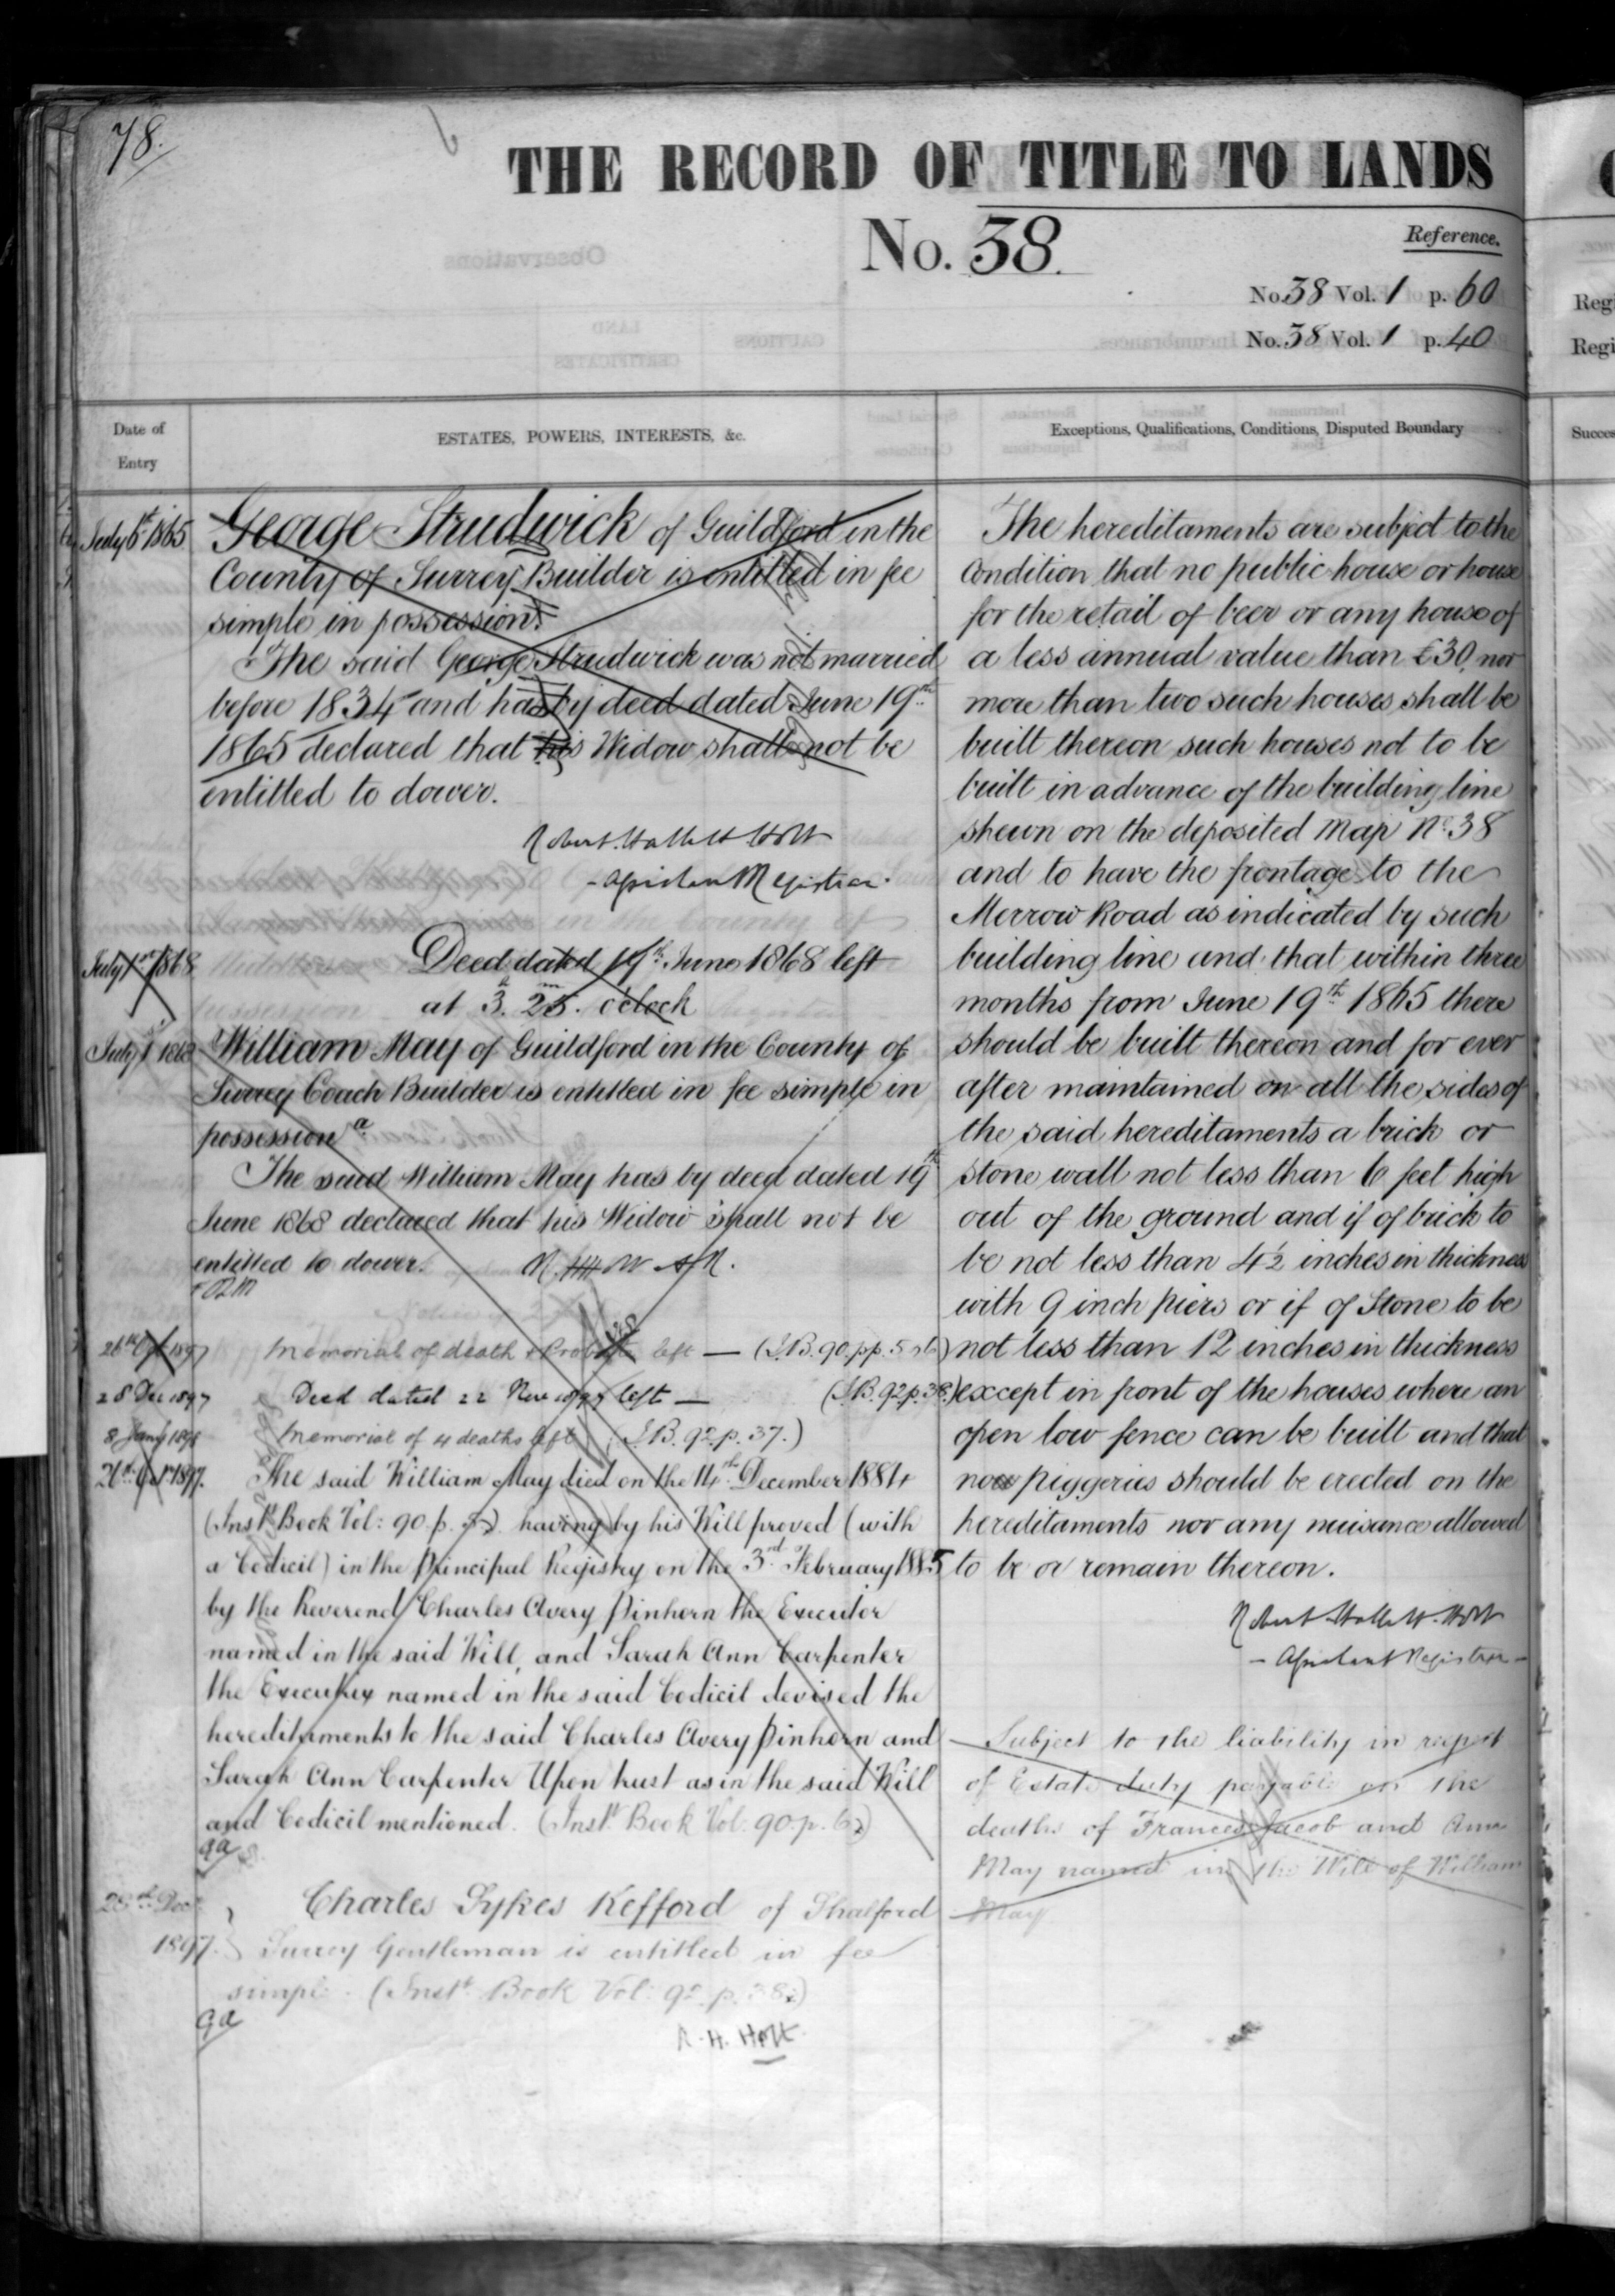 78.
THE RECORD OF TITLE TO LANDS
No. 38.
Reference.
No. 38 Vol. 1 p. 60
No. 38 Vol. 1 p. 40
Date of
Entry
ESTATES, POWERS, INTERESTS, &c.
July 6th 1865
George Strudwick of Guildford in the
County of Surrey Builder is entitled in fee
simple in possession.
The said George Strudwick was not married
before 1834 and has by deed dated June 19th
1865 declared that his Widow shall not be
entitled to dower.
Robert Hallett Holt
Assistant Registrar.
July 1st 1868
Deed dated 19th June 1868 left
at 3h 25m o'clock
July 1st 1868
William May of Guildford in the County of
Surrey Coach Builder is entitled in fee simple in
possession
The said William May has by deed dated 19th
June 1868 declared that his Widow shall not be
entitled to dower.
26th Oct 1897
Memorial of death & Probate left — (I.B. 90. pp. 5 & 6)
28 Dec 1897
Deed dated 22 Nov 1897 left — (I.B. 92 p. 38.)
8 Jany 1898
Memorial of 4 deaths left (I.B. 92. p. 37.)
26th Oct 1897.
The said William May died on the 14th December 1884
(Inst. Book Vol: 90. p. 5) having by his Will proved (with
a Codicil) in the Principal Registry on the 3rd February 1885
by the Reverend Charles Avery Pinhorn the Executor
named in the said Will, and Sarah Ann Carpenter
the Executrix named in the said Codicil devised the
hereditaments to the said Charles Avery Pinhorn and
Sarah Ann Carpenter Upon trust as in the said Will
and Codicil mentioned. (Inst. Book Vol: 90. p. 6)
28th Dec
1897.
Charles Sykes Kefford of Shalford
Surrey Gentleman is entitled in fee
simple. (Inst. Book Vol: 92. p. 38.)
R. H. Holt
Exceptions, Qualifications, Conditions, Disputed Boundary
The hereditaments are subject to the
condition that no public house or house
for the retail of beer or any house of
a less annual value than £30, nor
more than two such houses shall be
built thereon such houses not to be
built in advance of the building line
shewn on the deposited Map No. 38
and to have the frontage to the
Merrow Road as indicated by such
building line and that within three
months from June 19th 1865 there
should be built thereon and for ever
after maintained on all the sides of
the said hereditaments a brick or
stone wall not less than 6 feet high
out of the ground and if of brick to
be not less than 4½ inches in thickness
with 9 inch piers or if of Stone to be
not less than 12 inches in thickness
except in front of the houses where an
open low fence can be built and that
no piggeries should be erected on the
hereditaments nor any nuisance allowed
to be or remain thereon.
Robert Hallett Holt
— Assistant Registrar —
Subject to the liability in respect
of Estate duty payable on the
deaths of Frances Jacob and Ann
May named in the Will of William
May